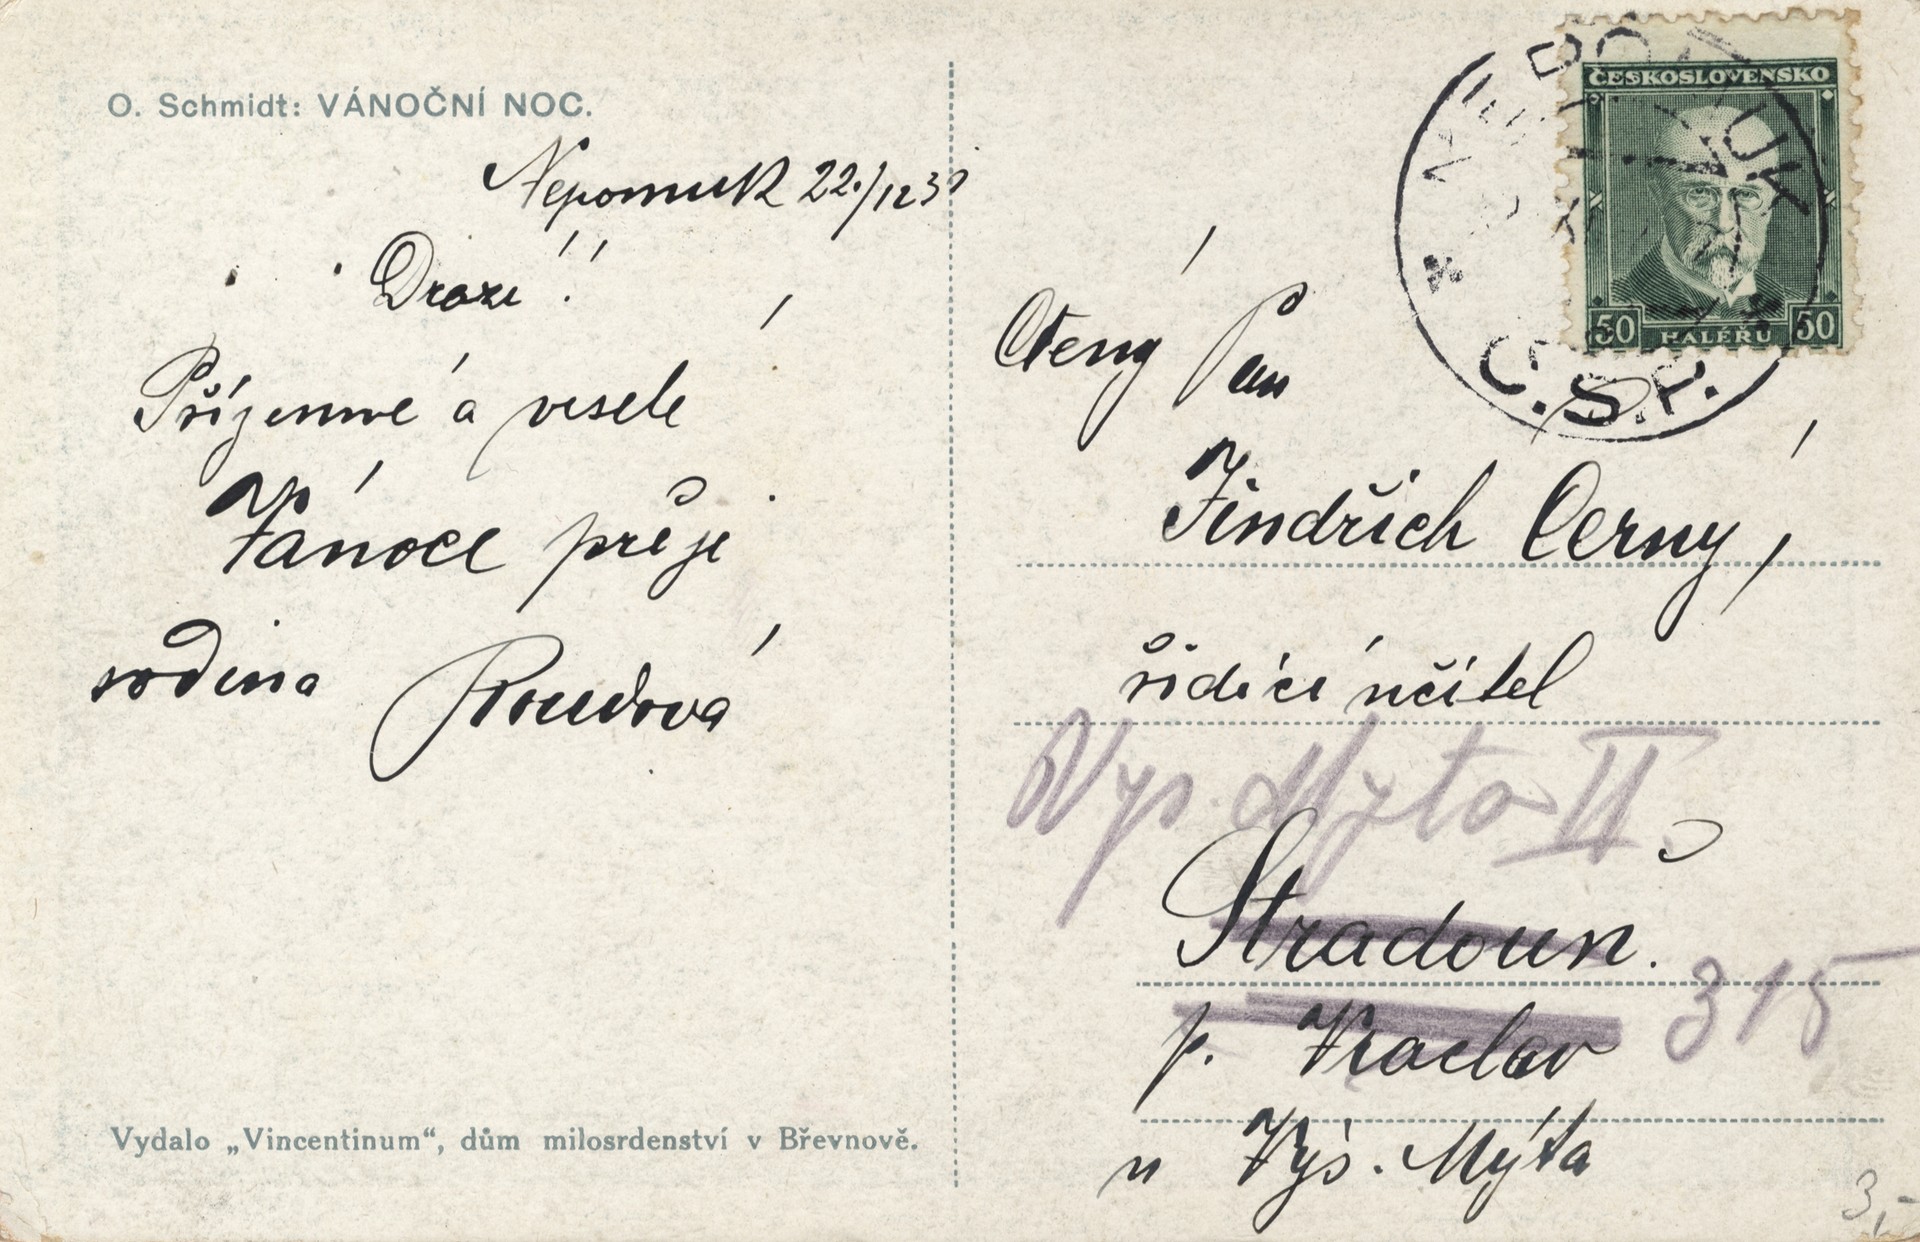 O. Schmidt: VÁNOČNÍ NOC.
Nepomuk 22./12 31
Drazí!
Příjemné a veselé
Vánoce přeje
rodina Roudová
Vydalo „Vincentinum“, dům milosrdenství v Břevnově.
ČESKOSLOVENSKO
50 HALÉŘŮ 50
NEPOMUK
Č.S.P.
Ctěný Pán
Jindřich Černý,
řídící učitel
Vys. Mýto II.
Stradouň.
315
p. Vraclav
u Vys. Mýta
3,-